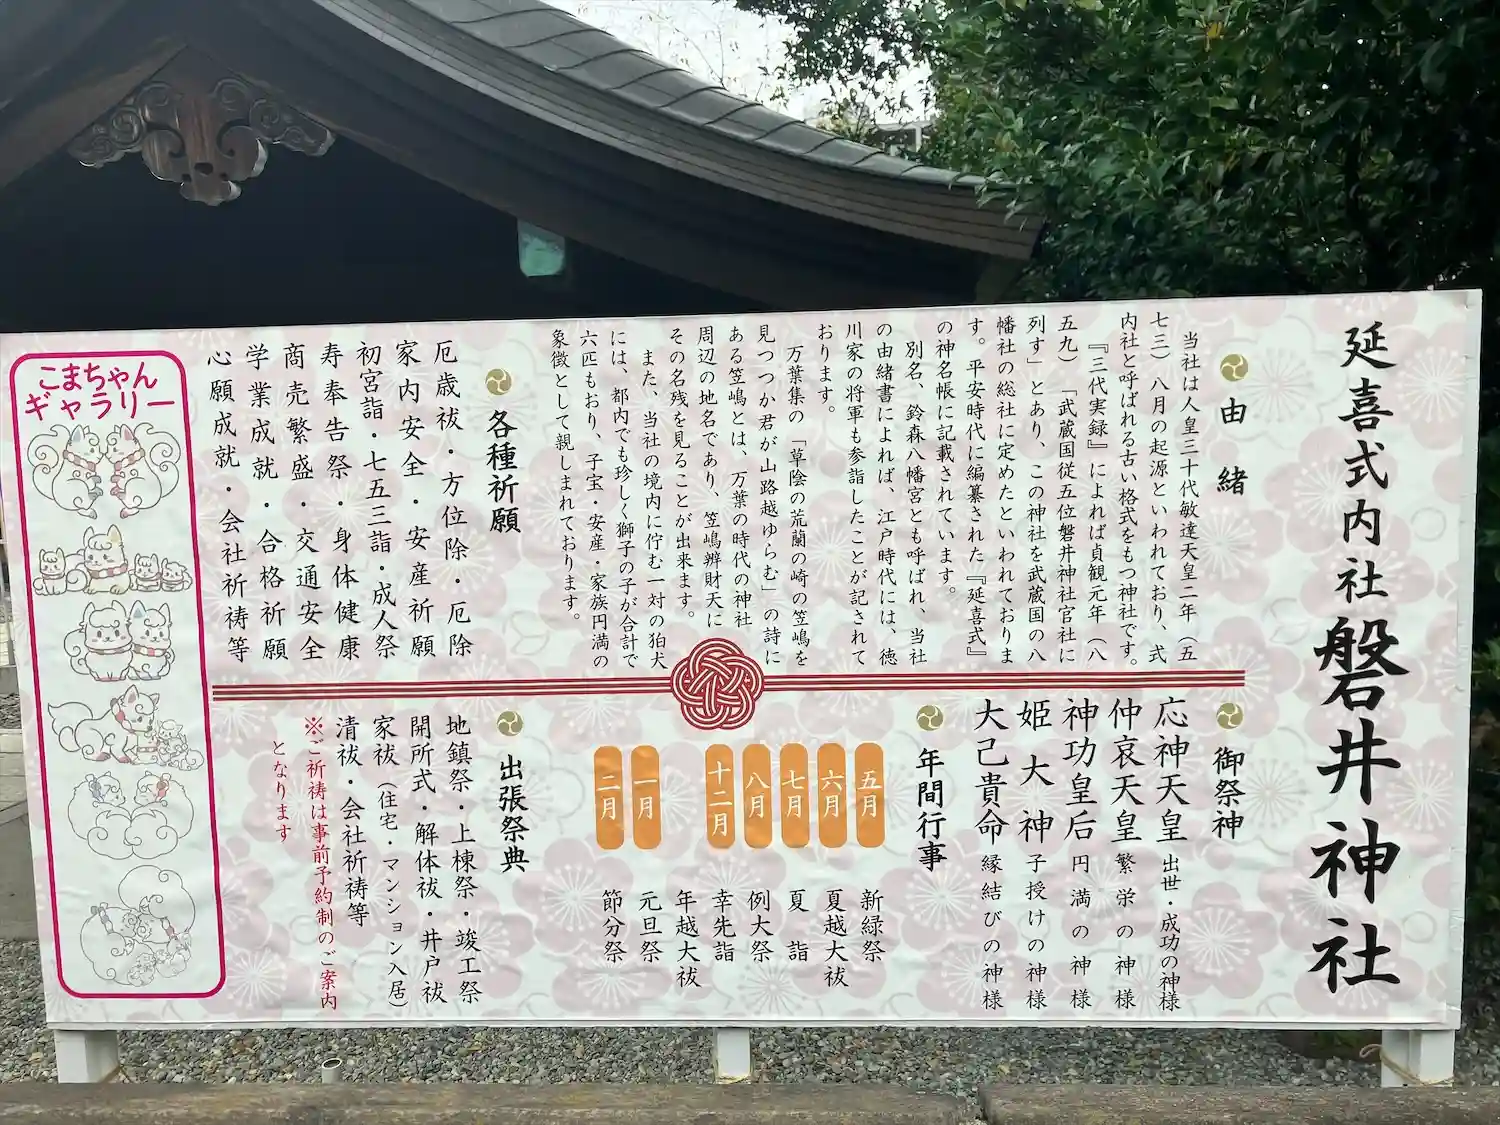 延喜式内社 磐井神社
由緒
当社は人皇三十代敏達天皇二年（五
七三）八月の起源といわれており、式
内社と呼ばれる古い格式をもつ神社です。
『三代実録』によれば貞観元年（八
五九）「武蔵国従五位磐井神社官社に
列す」とあり、この神社を武蔵国の八
幡社の総社に定めたといわれておりま
す。平安時代に編纂された『延喜式』
の神名帳に記載されています。
別名、鈴森八幡宮とも呼ばれ、当社
の由緒書によれば、江戸時代には、徳
川家の将軍も参詣したことが記されて
おります。
万葉集の「草陰の荒藺の崎の笠嶋を
見つつか君が山路越ゆらむ」の詩に
ある笠嶋とは、万葉の時代の神社
周辺の地名であり、笠嶋辨財天に
その名残を見ることが出来ます。
また、当社の境内に佇む一対の狛犬
には、都内でも珍しく獅子の子が合計で
六匹もおり、子宝・安産・家族円満の
象徴として親しまれております。
各種祈願
厄歳祓・方位除・厄除
家内安全・安産祈願
初宮詣・七五三詣・成人祭
寿奉告祭・身体健康
商売繁盛・交通安全
学業成就・合格祈願
心願成就・会社祈祷等
御祭神
応神天皇 出世・成功の神様
仲哀天皇 繁栄の神様
神功皇后 円満の神様
姫大神 子授けの神様
大己貴命 縁結びの神様
年間行事
五月 新緑祭
六月 夏越大祓
七月 夏詣
八月 例大祭
十二月 幸先詣
年越大祓
一月 元旦祭
二月 節分祭
出張祭典
地鎮祭・上棟祭・竣工祭
開所式・解体祓・井戸祓
家祓（住宅・マンション入居）
清祓・会社祈祷等
※ご祈祷は事前予約制のご案内
となります
こまちゃん
ギャラリー